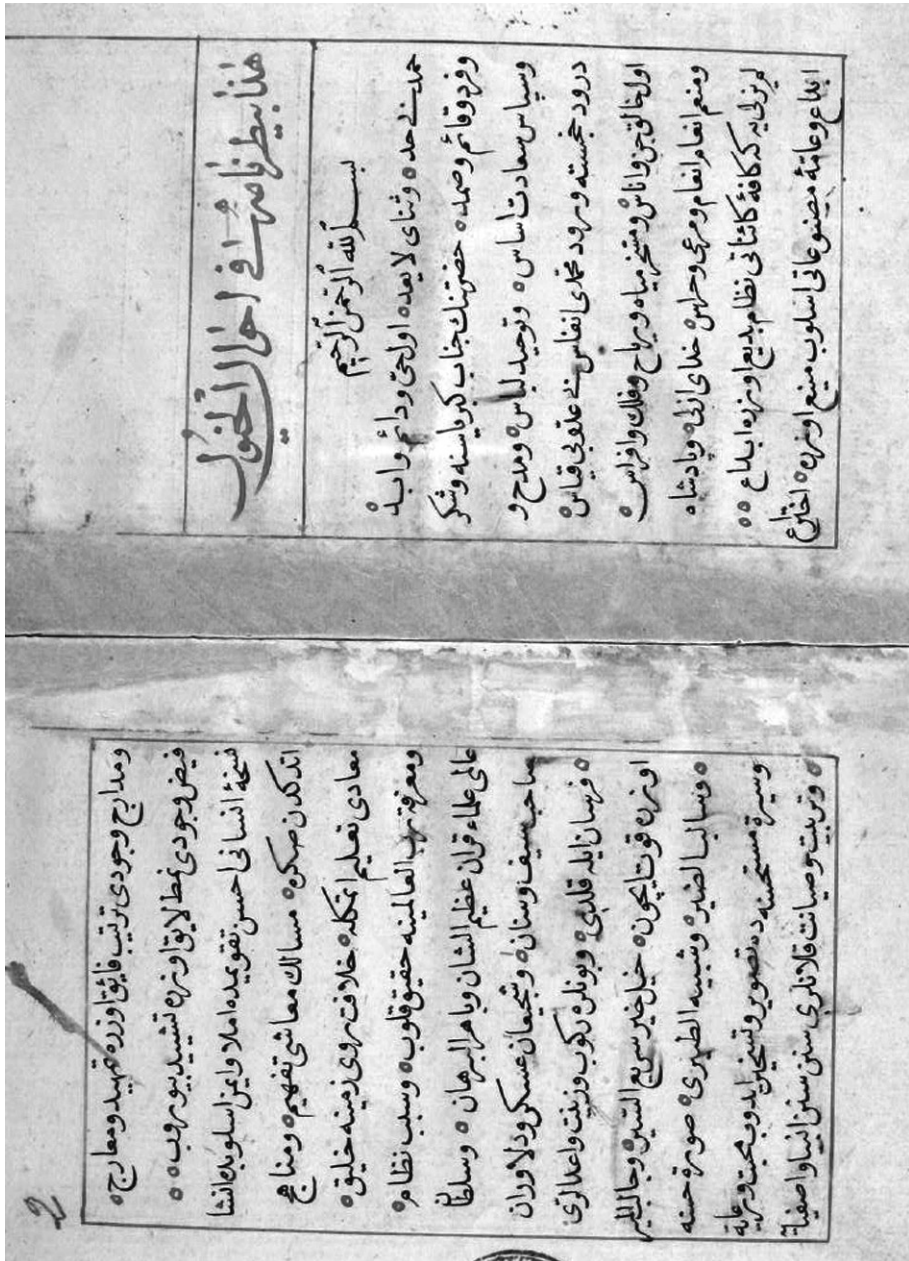 هذا بيطرنامه في احوال الخيول
بسم الله الرحمن الرحيم
حمد بى حده وثناى لا يعده اول حى ودائم وابده
وفرد وقائم وصمده حضرتنك جناب كبرياسنه وشكر
وسپاس سعادت اساس وتوحيد لباس ومدح و
درود خجسته ورود محمدى انفاس بى عقوبى قياس
اول خالق جن واناس ومسخر مياه ورياح وفلك وافراس
ومنعم انعام وانعام ومرجى وحارس خداى ازلى وپادشاه
لم يزلى يه كه كافۀ كائناتى نظام بديع اوزره ابداع
ابداع وعامۀ مصنوعاتى اسلوب منيع اوزره اختراع
ومدارج وجودى ترتيب فايق اوزره تمهيد ومعارج
فيض وجودى نمط لايق اوزره تشييد بيوروب
نسخۀ انسانى احسن تقويمده املا وايمن اسلوبده انشا
اتدكدن صكره مسالك معاشى تفهيم ومناهج
معادى تعليم اتمكله خلافت روى زمينه خليق
ومعرفة رب العالمينه حقيق قلوب وسبب نظام
عالى علماء قران عظيم الشان وباهر البرهان وسلطان
صاحب سيف وسنان وشجيعان عسكر ودلاوران
فرسان ايله قلدى وبونلره ركوب وزينت واعدالرى
اوزره قوت ايچون خيل خير سريع السير وجالب المير
وسالب الضير وشبيه الطيرى صورة حسنه
وسيرة مستحسنه ده تصوير وتسخير ايدوب محبت ورعاية
وتربيت وصيانت قلانلرى سنن سنن انبيا واصفياء
2